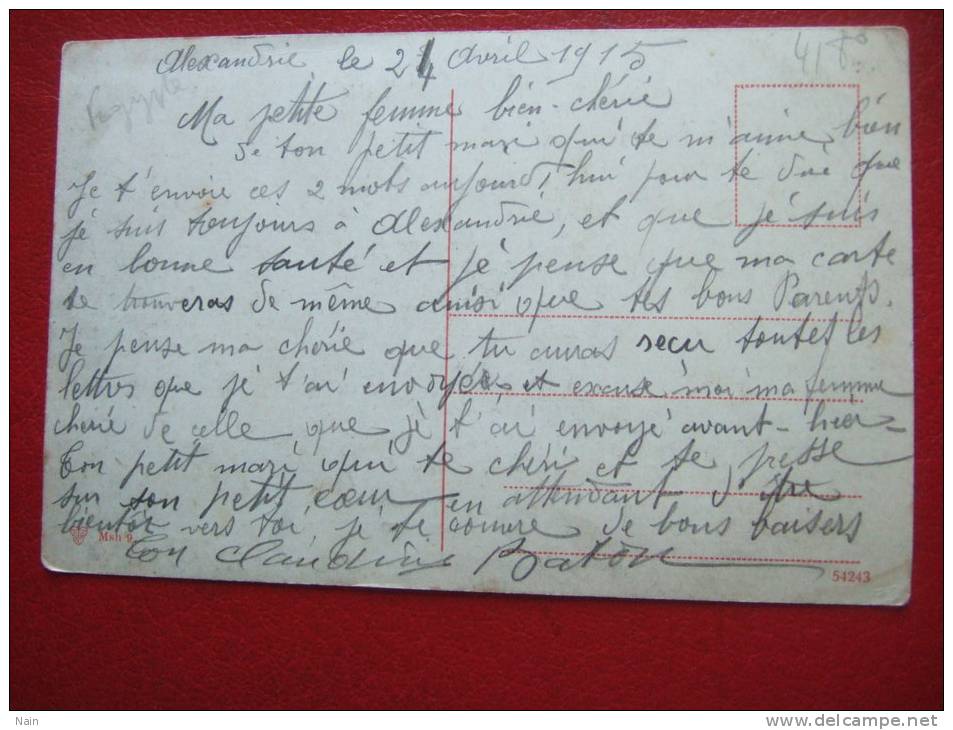 Alexandrie le 24 Avril 1915
41 80
Egypte
Ma petite femme bien-chérie
de ton petit mari qui te m'aime bien
Je t'envoie ces 2 mots aujourd'hui pour te dire que
je suis toujours à Alexandrie, et que je suis
en bonne santé et je pense que ma carte
te trouveras de même ainsi que tes bons Parents.
Je pense ma chérie que tu auras reçu toutet les
lettres que je t'ai envoyées, et excuse moi ma femme
chérie de celle que je t'ai envoyé avant-hier
Ton petit mari qui te chéri et te presse
sur son petit cœur en attendant d'être
bientôt vers toi je te couvre de bons baisers
Ton Claudius Baton
Msh 9
54243
Nain
www.delcampe.net